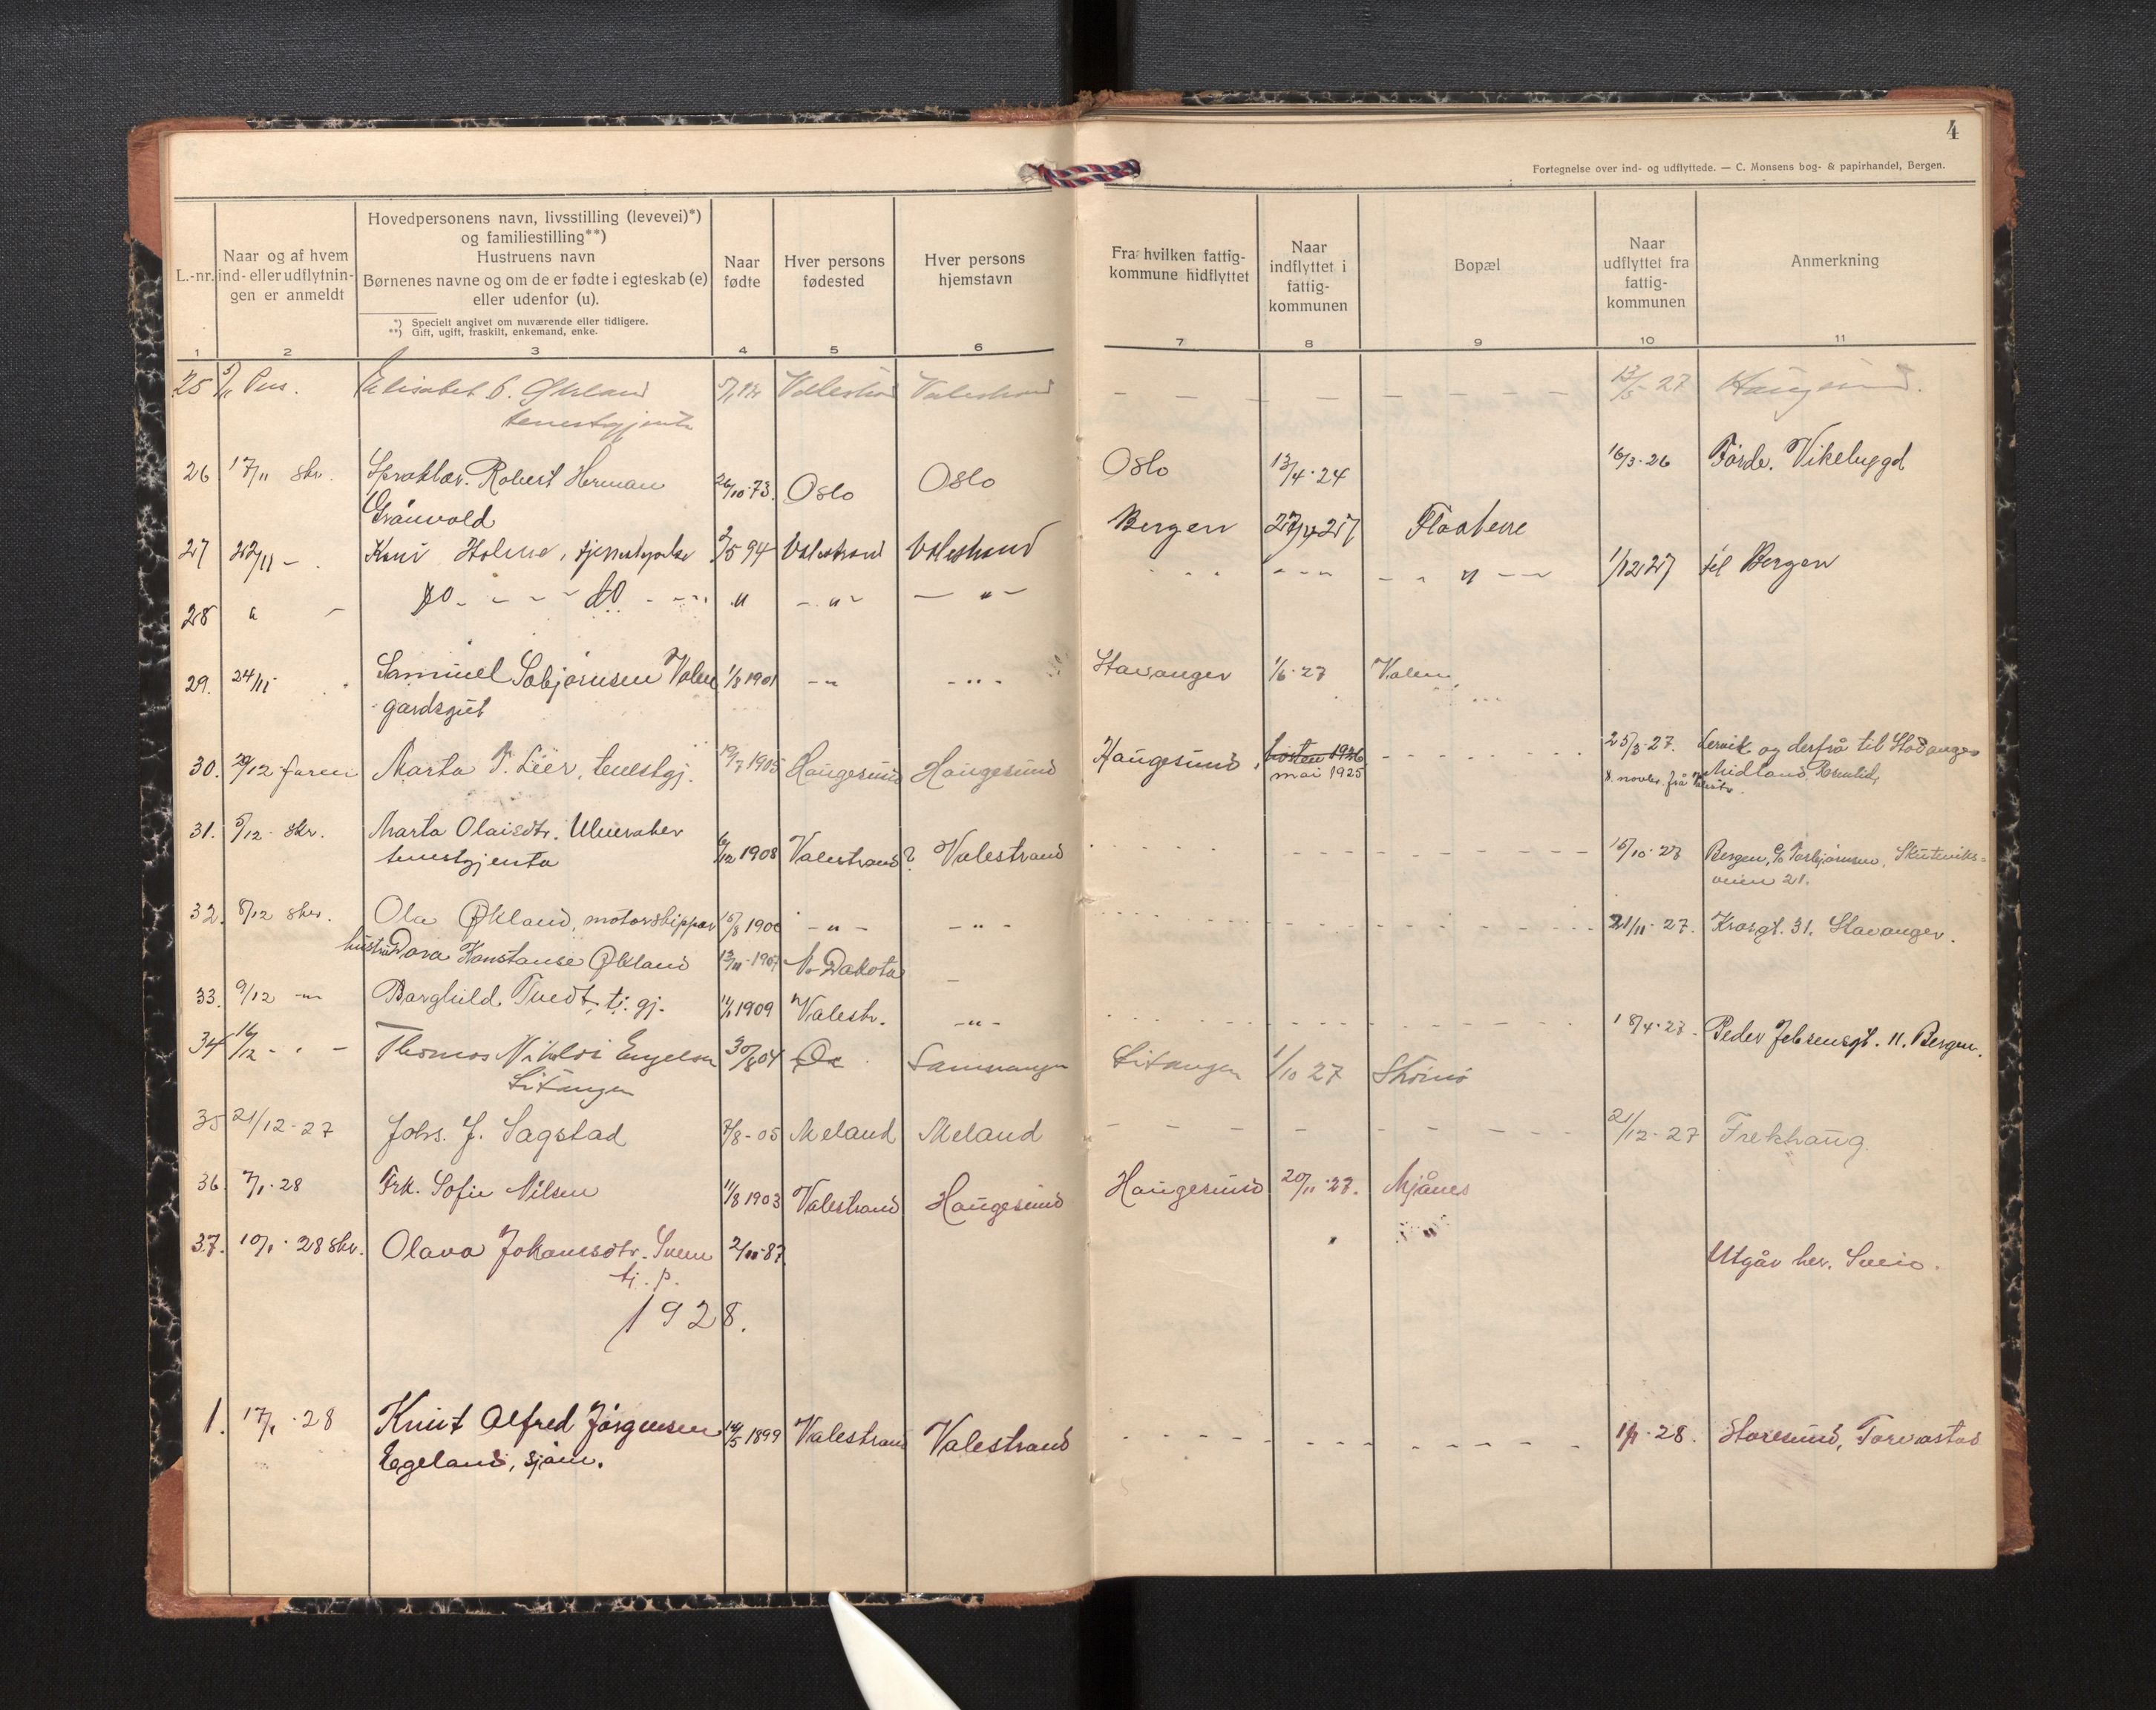 4
Fortegnelse over ind- og udflyttede. — C. Monsens bog- & papirhandel, Bergen.
L.-nr.
Naar og af hvem
ind- eller udflytnin-
gen er anmeldt
Hovedpersonens navn, livsstilling (levevei)*)
og familiestilling**)
Hustruens navn
Børnenes navne og om de er fødte i egteskab (e)
eller udenfor (u).
*) Specielt angivet om nuværende eller tidligere.
**) Gift, ugift, fraskilt, enkemand, enke.
Naar
fødte
Hver persons
fødested
Hver persons
hjemstavn
Fra hvilken fattig-
kommune hidflyttet
Naar
indflyttet i
fattig-
kommunen
Bopæl
Naar
udflyttet fra
fattig-
kommunen
Anmerkning
1 2 3 4 5 6 7 8 9 10 11
25 Elisabet Valestrand Valestrand 13/5 27 Haugesund.
tenestgjenta
26 17/11 skr. Robert Herman 26/10.73. Oslo Oslo Oslo 13/4.24 16/3.26 Førde. Vikebygd
Grånvold
27 22/11 - Holme, 2/5 94 Valestrand Valestrand Bergen
28 " - do - - - do - - " - " - - " - - - " - - 1/12 27 til Bergen
29. 24/11 Samuel Sæbjørnsen Valen 1/8 1901 - " - " - Stavanger 1/6.27 Valen
gardsgut
30. 29/12 faren Marta T. Lier, tenestgj. 1905 Haugesund Haugesund Haugesund hösten 1926 25/3.27. Lervik og derfrå til Stavanger
mai 1925 8. novbr. frå Midland
31. 5/12 skr. Marta Olaisdtr. 6/12 1908 Valestrand? Valestrand 15/10.27 Bergen, c/o Torbjørnsen, Skuteviks-
tenestgjenta veien 21.
32. 8/12 skr. Ola Økland, motorskipper 15/8 1900 - " - - " - 21/11.27. 31. Stavanger.
hustru Dara Konstanse Økland 13/11.1907 N. Dakota -
33. 9/12 - " - Borghild Tvedt, tj. gj. 1909 Valestr. - " - 18/4.27. Peder Jebsensgt. 11. Bergen.
34 16/12 - " - Thomas Nikolai Engelsen 30/8 04 Samnanger 1/10 27
35 21/12-27 Johs. J. Sagstad 7/8-05 Meland Meland 21/12-27 Frekhaug
36. 7/1.28 Frk. Sofie Nilsen 11/8 1903 Valestrand Haugesund Haugesund 20/11.27. Mjånes
37. 10/1.28 skr. Olava Johannsdtr. Sveen 2/11-87. Utgår her. Sveio.
tj. p.
1928.
1. 17/1.28 Knut Alfred Jørgensen 14/5 1899 Valestrand Valestrand 1/1.28. Storesund, Torvastad
Egeland, sjøm.